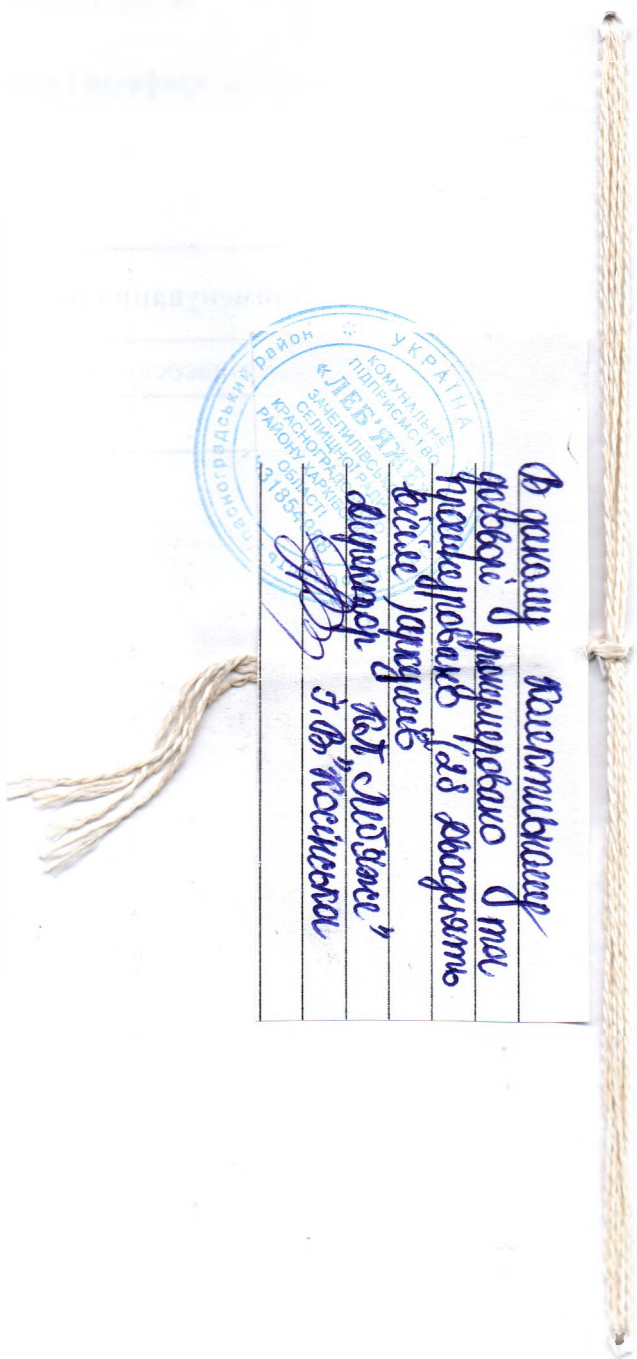 В даному колективному
договорі пронумеровано та
прошнуровано (28 двадцять
вісім) аркушів
Директор КП „Леб'яже"
І. В. Косінська
УКРАЇНА
Красноградський район
КОМУНАЛЬНЕ
ПІДПРИЄМСТВО
«ЛЕБ'ЯЖЕ»
ЗАЧЕПИЛІВСЬКОЇ
СЕЛИЩНОЇ РАДИ
КРАСНОГРАДСЬКОГО
РАЙОНУ ХАРКІВСЬКОЇ
ОБЛАСТІ